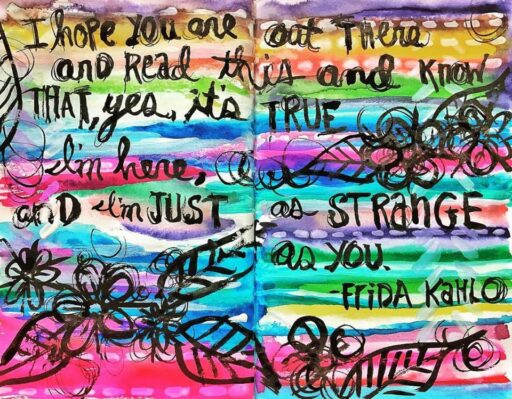 I hope you are out There
and Read this and know
THAT, yes, it's TRUE
I'm here,
and I'm JUST as STRANGE
as you.
-FRIDA KAHLO